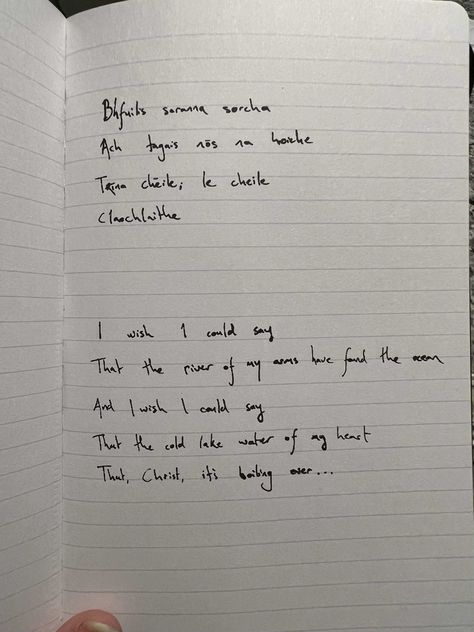 Bhfuilis soranna sorcha
Ach tagais nós na hoiche
Trína chéile; le cheile
Claochlaithe
I wish I could say
That the river of my arms have found the ocean
And I wish I could say
That the cold lake water of my heart
That, Christ, it's boiling over...